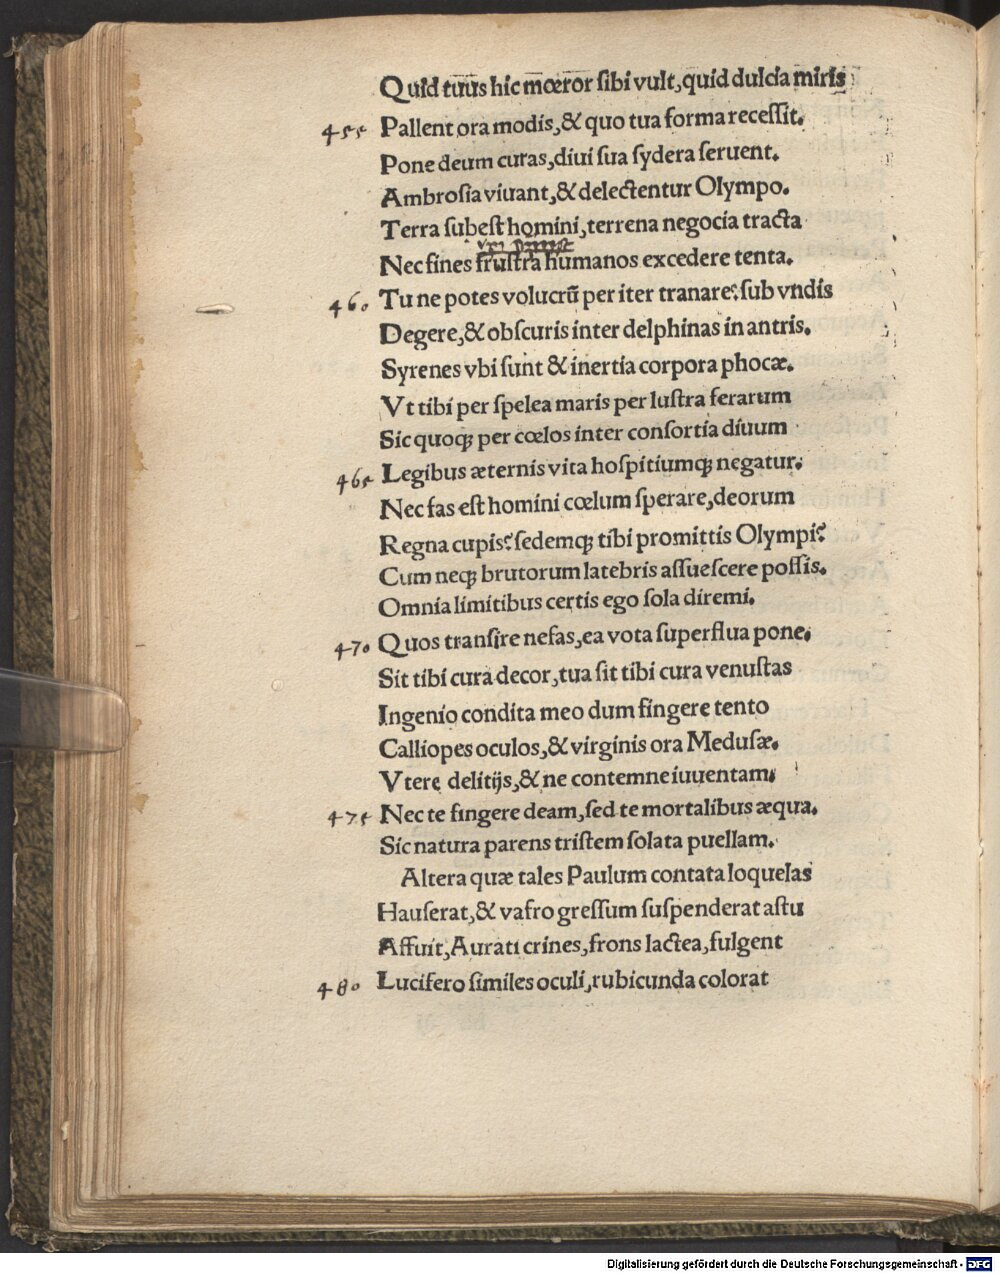 Quid tuus hic mœror sibi vult, quid dulcia miris
455 Pallent ora modis, & quo tua forma recessit.
Pone deum curas, diui sua sydera seruent.
Ambrosia viuant, & delectentur Olympo.
Terra subest homini, terrena negocia tracta
Nec fines frustra humanos excedere tenta.
460 Tu ne potes volucrū per iter tranare? sub vndis
Degere, & obscuris inter delphinas in antris.
Syrenes vbi sunt & inertia corpora phocæ.
Vt tibi per spelea maris per lustra ferarum
Sic quoqꝫ per cœlos inter consortia diuum
465 Legibus æternis vita hospitiumqꝫ negatur.
Nec fas est homini cœlum sperare, deorum
Regna cupis? sedemqꝫ tibi promittis Olympi?
Cum neqꝫ brutorum latebris assuescere possis.
Omnia limitibus certis ego sola diremi.
470 Quos transire nefas, ea vota superflua pone.
Sit tibi cura decor, tua sit tibi cura venustas
Ingenio condita meo dum fingere tento
Calliopes oculos, & virginis ora Medusæ.
Vtere delitijs, & ne contemne iuuentam.
475 Nec te fingere deam, sed te mortalibus æqua.
Sic natura parens tristem solata puellam.
Altera quæ tales Paulum contata loquelas
Hauserat, & vafro gressum suspenderat astu
Affuit, Aurati crines, frons lactea, fulgent
480 Lucifero similes oculi, rubicunda colorat
Digitalisierung gefördert durch die Deutsche Forschungsgemeinschaft - DFG